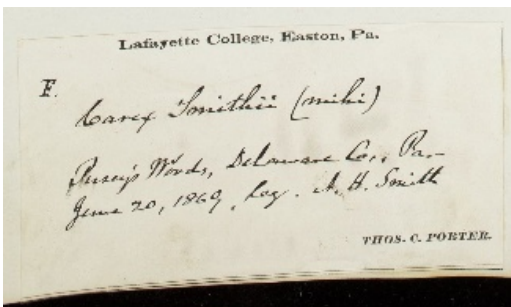 Lafayette College, Easton, Pa.
F.
Carex Smithii (mihi)
Pusey's Woods, Delaware Co., Pa.
June 20, 1869, leg. A. H. Smith
THOS. C. PORTER.